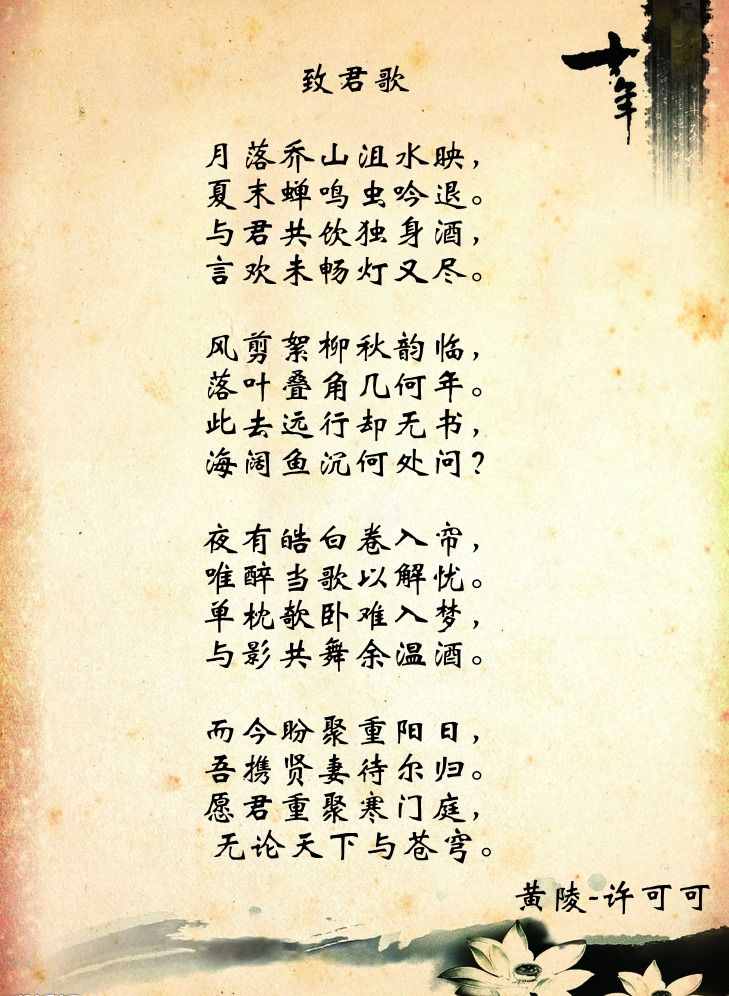 十年
致君歌
月落乔山沮水映，
夏末蝉鸣虫吟退。
与君共饮独身酒，
言欢未畅灯又尽。
风剪絮柳秋韵临，
落叶叠角几何年。
此去远行却无书，
海阔鱼沉何处问？
夜有皓白卷入帘，
唯醉当歌以解忧。
单枕欹卧难入梦，
与影共舞余温酒。
而今盼聚重阳日，
吾携贤妻待尔归。
愿君重聚寒门庭，
无论天下与苍穹。
黄陵-许可可